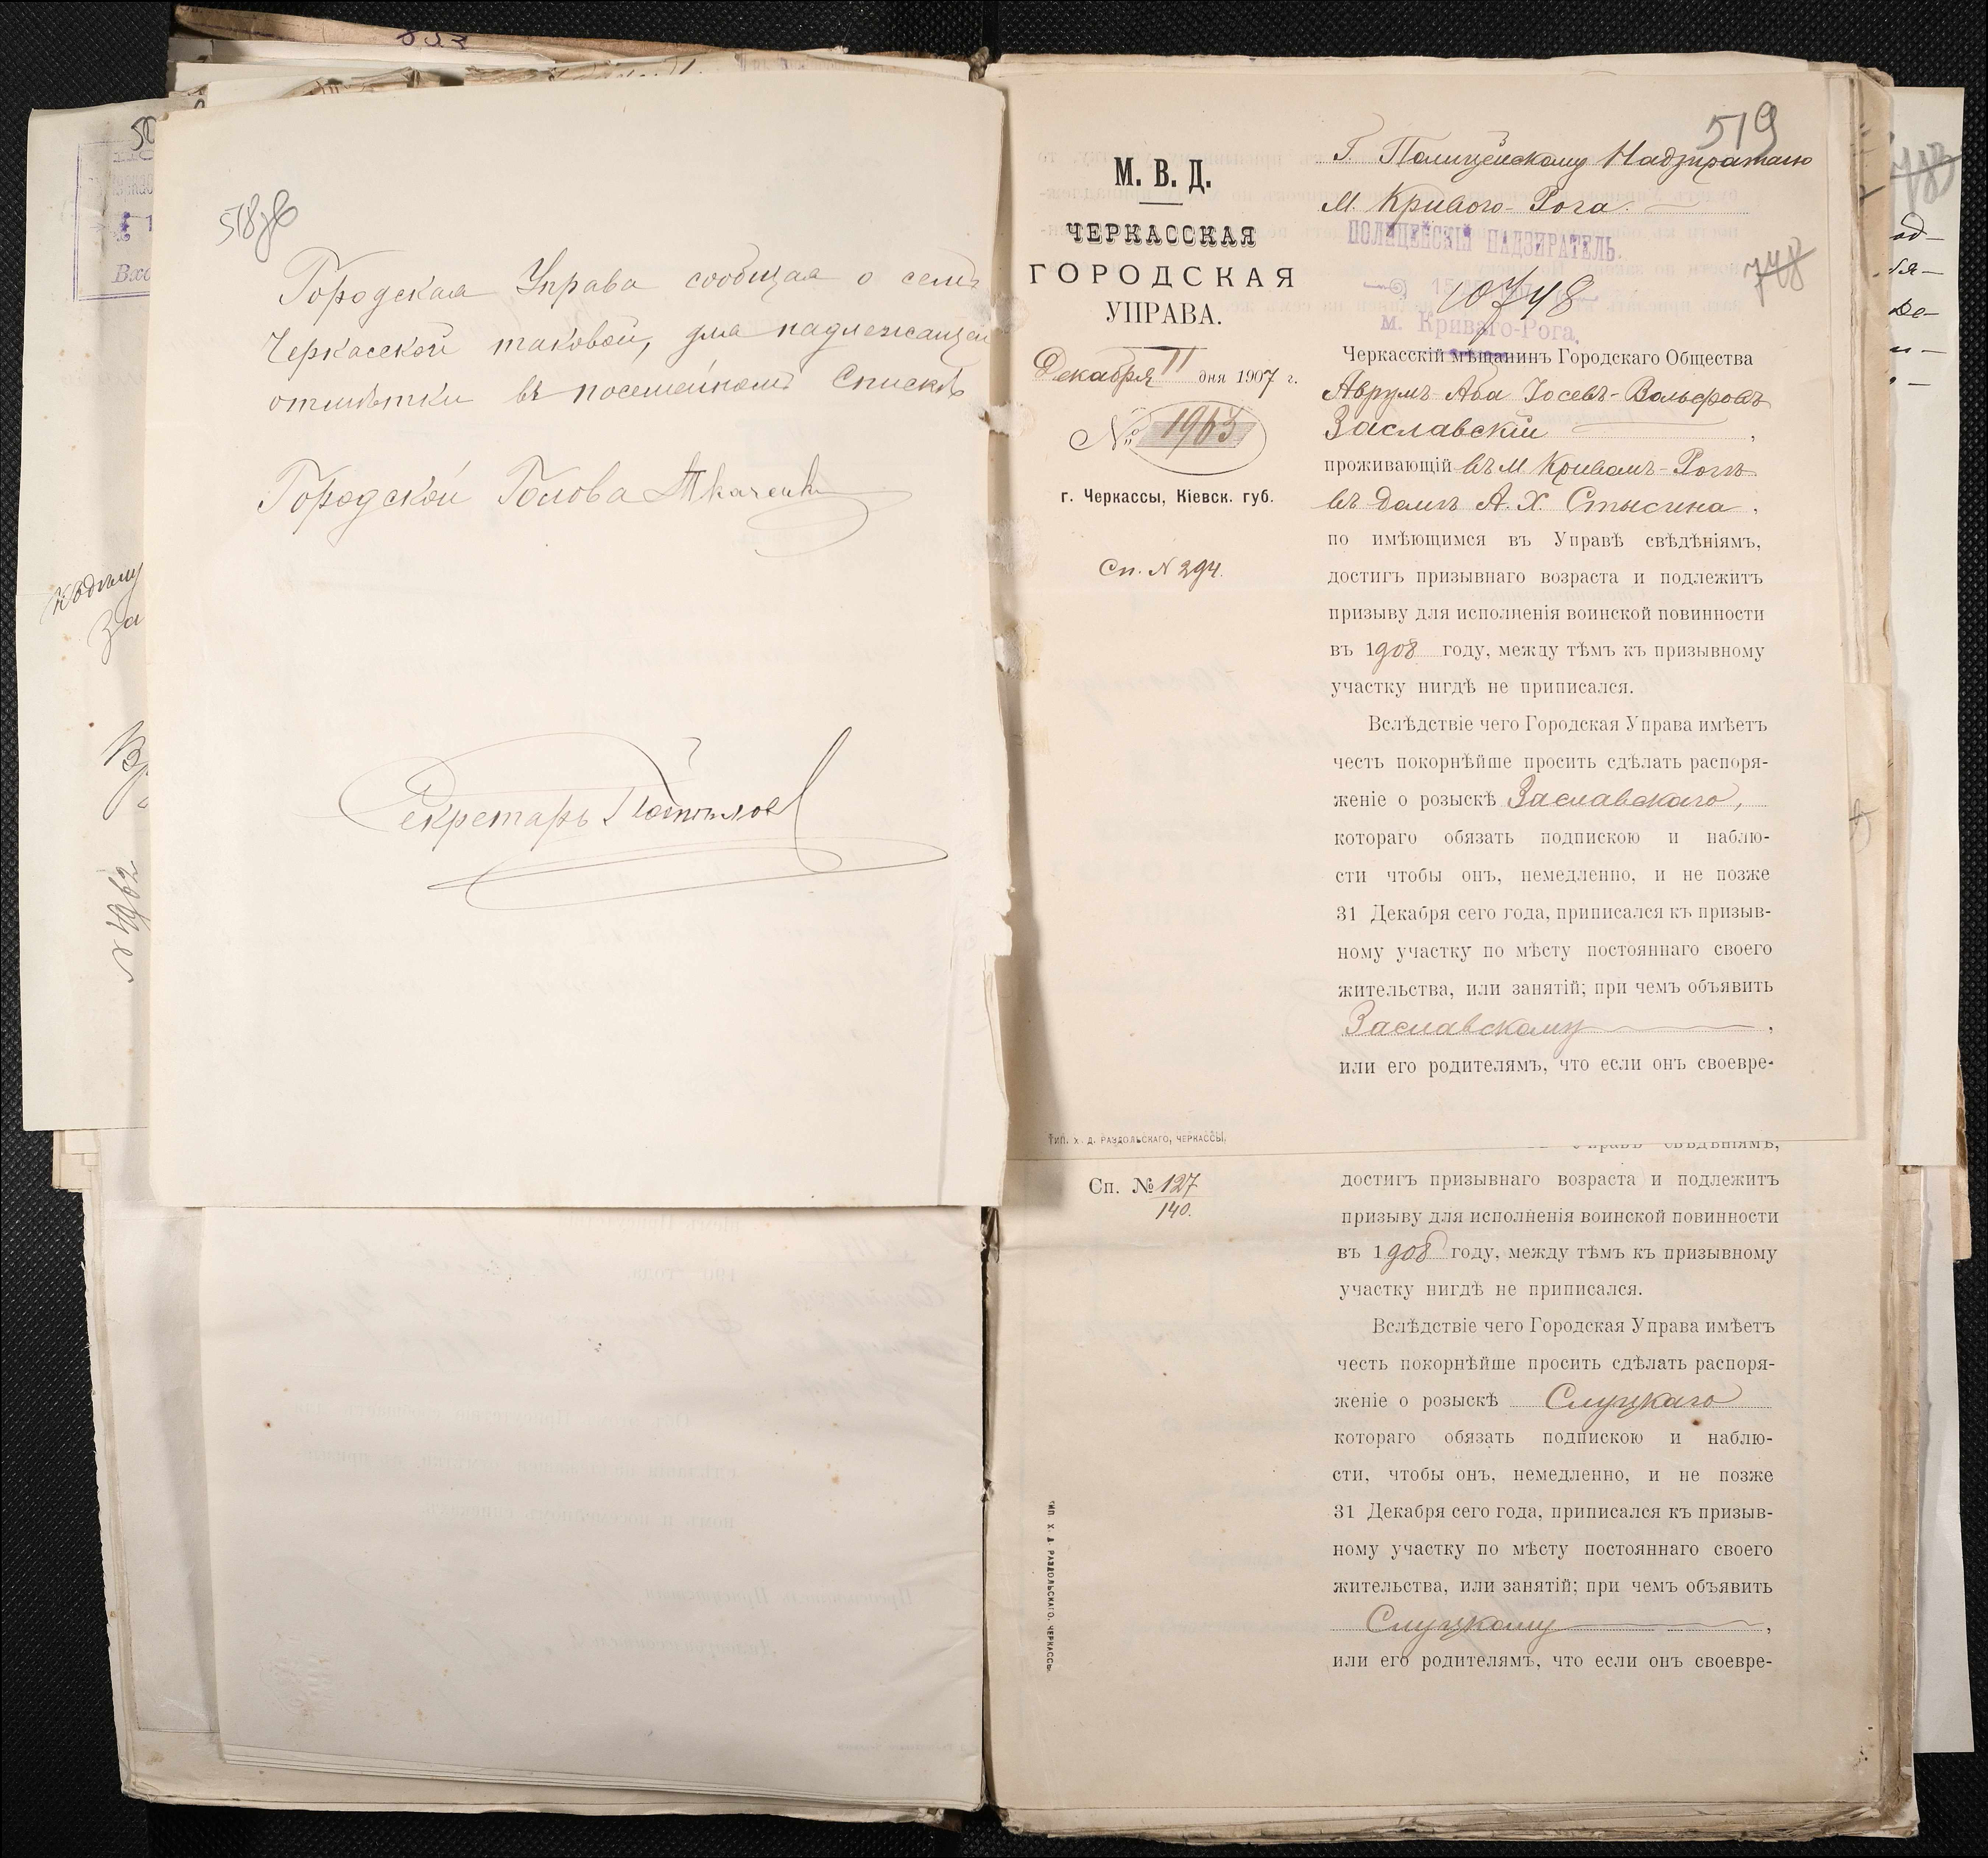 518 об
Городская Управа сообщая о семъ
Черкасской таковой, для надлежащей
отмѣтки въ посемейномъ спискѣ
Городской Голова Ткаченко
Секретарь
№ 4962
519
Г. Полицейскому Надзирателю
М. Кривого-Рога.
ПОЛИЦЕЙСКІЙ НАДЗИРАТЕЛЬ.
15
10748
м. Криваго-Рога.
748
М. В. Д.
ЧЕРКАССКАЯ
ГОРОДСКАЯ
УПРАВА.
Декабря 11 дня 1907 г.
№ 1963
г. Черкассы, Кіевск. губ.
Сп. № 294.
Черкасскій мѣщанинъ Городскаго Общества
Аврумъ-Аба Іосевъ-Вольфовъ
Заславскій,
проживающій въ М Кривомъ-Рогѣ
въ домѣ А. Х. Стысина,
по имѣющимся въ Управѣ свѣдѣніямъ,
достигъ призывнаго возраста и подлежитъ
призыву для исполненія воинской повинности
въ 1908 году, между тѣмъ къ призывному
участку нигдѣ не приписался.
Вслѣдствіе чего Городская Управа имѣетъ
честь покорнѣйше просить сдѣлать распоря-
женіе о розыскѣ Заславскаго,
котораго обязать подпискою и наблю-
сти чтобы онъ, немедленно, и не позже
31 Декабря сего года, приписался къ призыв-
ному участку по мѣсту постояннаго своего
жительства, или занятій; при чемъ объявить
Заславскому,
или его родителямъ, что если онъ своевре-
ТИП. Х. Д. РАЗДОЛЬСКАГО, ЧЕРКАССЫ.
Управѣ свѣдѣніямъ,
Сп. № 127
140.
достигъ призывнаго возраста и подлежитъ
призыву для исполненія воинской повинности
въ 1908 году, между тѣмъ къ призывному
участку нигдѣ не приписался.
Вслѣдствіе чего Городская Управа имѣетъ
честь покорнѣйше просить сдѣлать распоря-
женіе о розыскѣ Слуцкаго
котораго обязать подпискою и наблю-
сти, чтобы онъ, немедленно, и не позже
31 Декабря сего года, приписался къ призыв-
ному участку по мѣсту постояннаго своего
жительства, или занятій; при чемъ объявить
Слуцкому,
или его родителямъ, что если онъ своевре-
ТИП. Х. Д. РАЗДОЛЬСКАГО, ЧЕРКАССЫ.